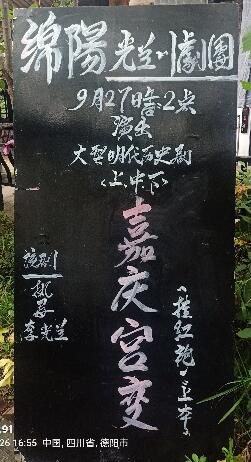 綿陽光兰川劇團
9月27日晝:2点
演出
大型明代历史剧
《上、中、下》
嘉庆宫变
《挂红袍》上本
演剧
李光兰
26 16:55 中国,四川省,德阳市